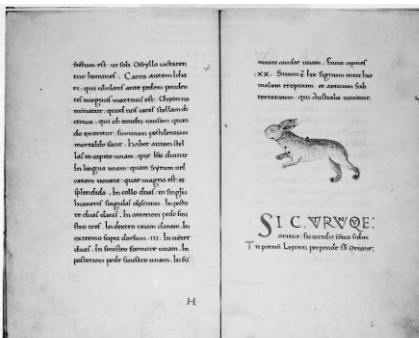 factum est ut soli Osyllo sacraren
tur homines. Canis autem Icha
ri. qui ululans ante pedem
virginis mortuus est.
minatur. quod nos canis stellam di
cimus. qui ob eandem causam quan
do exoritur. summam pestilentiam
mortalibus facit. habet autem stel
las in capite unam. que Isis dicitur
In lingua unam. quam Syrium vel
canem vocant. que magna est et
splendida. In collo duas. in singulis
humeris singulas obscuras. In pecto
re duas claras. In anteriori pede sini
stro tres. In dextro unam claram. In
extremo supra dorsum. III. In ventre
duas. In sinistro femore unam. In
posteriori pede sinistro unam. In
H
caude unam. Sunt omnes
.XX. Situm est hoc signum inter hie
malem tropicum et articum sub
terraneum. qui Australis vocatur.
SIC. VRVQE:
oritur. sic occidit sidus
Tu poteris Leporis perpende sub Orione;